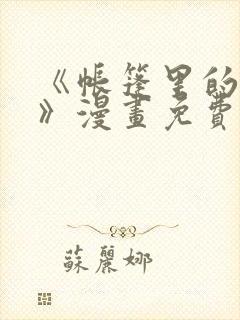 《帐篷里的
》漫畫免費
蘇麗娜